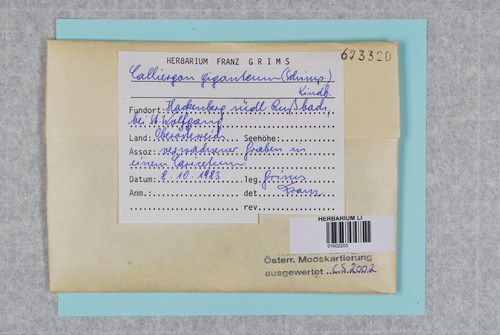 673320
HERBARIUM FRANZ GRIMS
Calliergon giganteum (Schimp.)
Kindb.
Fundort: Hackenberg südl Rußbach,
bei St Wolfgang
Land: Oberösterreich Seehöhe:
Assoz: verwachsener Graben in
einem Caricetum
Datum: 8.10.1983 leg. Grims
Anm.: det. Franz
rev.
HERBARIUM LI
01602203
Österr. Mooskartierung
ausgewertet C.S.2002